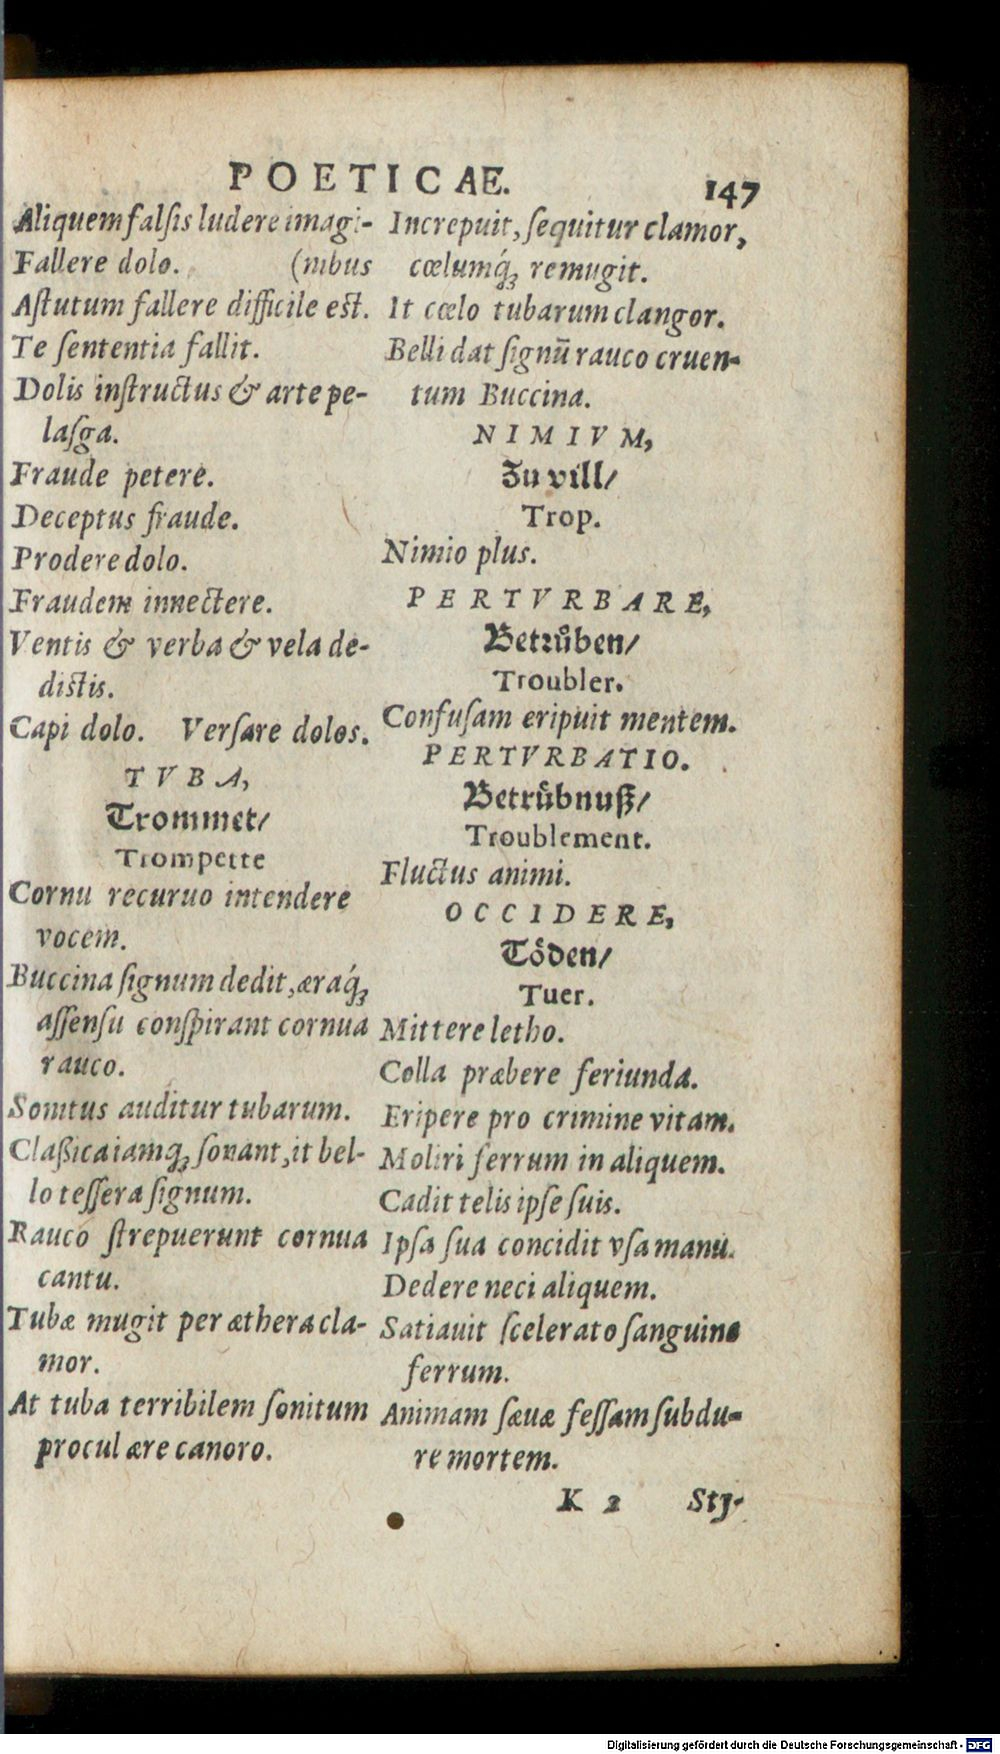 POETICAE.
147
Aliquem falſis ludere imagi-
Fallere dolo. (nibus
Aſtutum fallere difficile eſt.
Te ſententia fallit.
Dolis inſtructus & arte pe-
laſga.
Fraude petere.
Deceptus fraude.
Prodere dolo.
Fraudem innectere.
Ventis & verba & vela de-
diſtis.
Capi dolo. Verſare dolos.
TVBA,
Trommet/
Trompette
Cornu recuruo intendere
vocem.
Buccina ſignum dedit, æraq́ꝫ
aſſenſu conſpirant cornua
rauco.
Sonitus auditur tubarum.
Claßica iamqꝫ ſonant, it bel-
lo teſſera ſignum.
Rauco ſtrepuerunt cornua
cantu.
Tubæ mugit per æthera cla-
mor.
At tuba terribilem ſonitum
procul ære canoro.
Increpuit, ſequitur clamor,
cœlumq́ꝫ remugit.
It cœlo tubarum clangor.
Belli dat ſignũ rauco cruen-
tum Buccina.
NIMIVM,
Zu vill/
Trop.
Nimio plus.
PERTVRBARE,
Betruͤben/
Troubler.
Confuſam eripuit mentem.
PERTVRBATIO.
Betruͤbnuß/
Troublement.
Fluctus animi.
OCCIDERE,
Toͤden/
Tuer.
Mittere letho.
Colla præbere feriunda.
Eripere pro crimine vitam.
Moliri ferrum in aliquem.
Cadit telis ipſe ſuis.
Ipſa ſua concidit vſa manu.
Dedere neci aliquem.
Satiauit ſcelerato ſanguine
ferrum.
Animam ſæuæ feſſam ſubdu-
re mortem.
K 2 Stj-
Digitalisierung gefördert durch die Deutsche Forschungsgemeinschaft - DFG